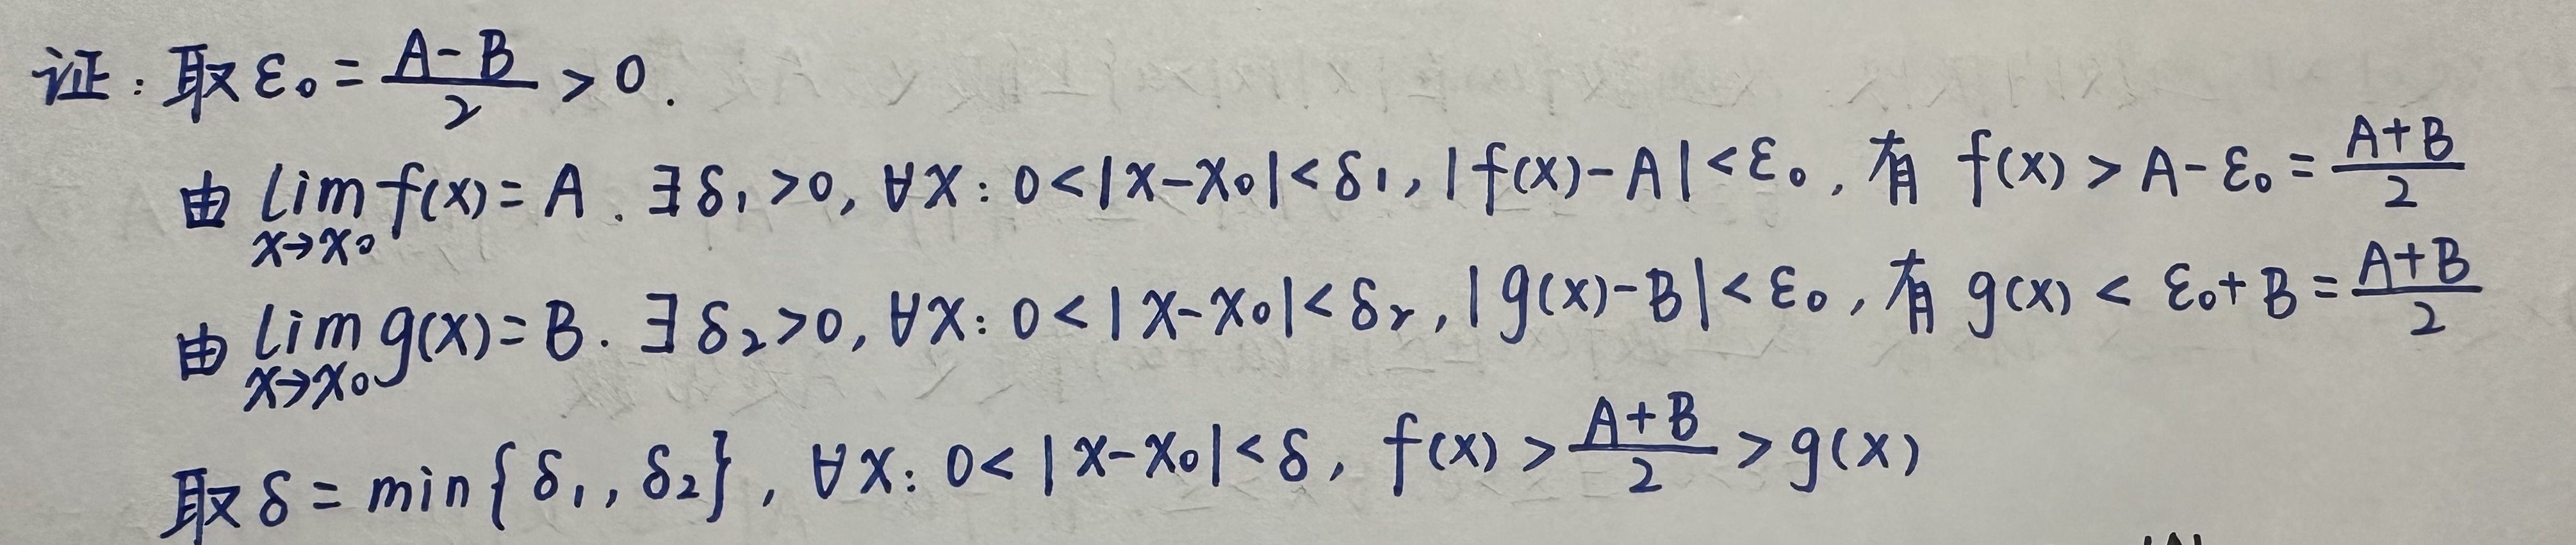 证：取 ε₀ = (A-B)/2 > 0.
由 lim_{x→x₀} f(x) = A. ∃δ₁>0, ∀x: 0<|x-x₀|<δ₁, |f(x)-A|<ε₀, 有 f(x) > A-ε₀ = (A+B)/2
由 lim_{x→x₀} g(x) = B. ∃δ₂>0, ∀x: 0<|x-x₀|<δ₂, |g(x)-B|<ε₀, 有 g(x) < ε₀+B = (A+B)/2
取 δ = min{δ₁, δ₂}, ∀x: 0<|x-x₀|<δ, f(x) > (A+B)/2 > g(x)